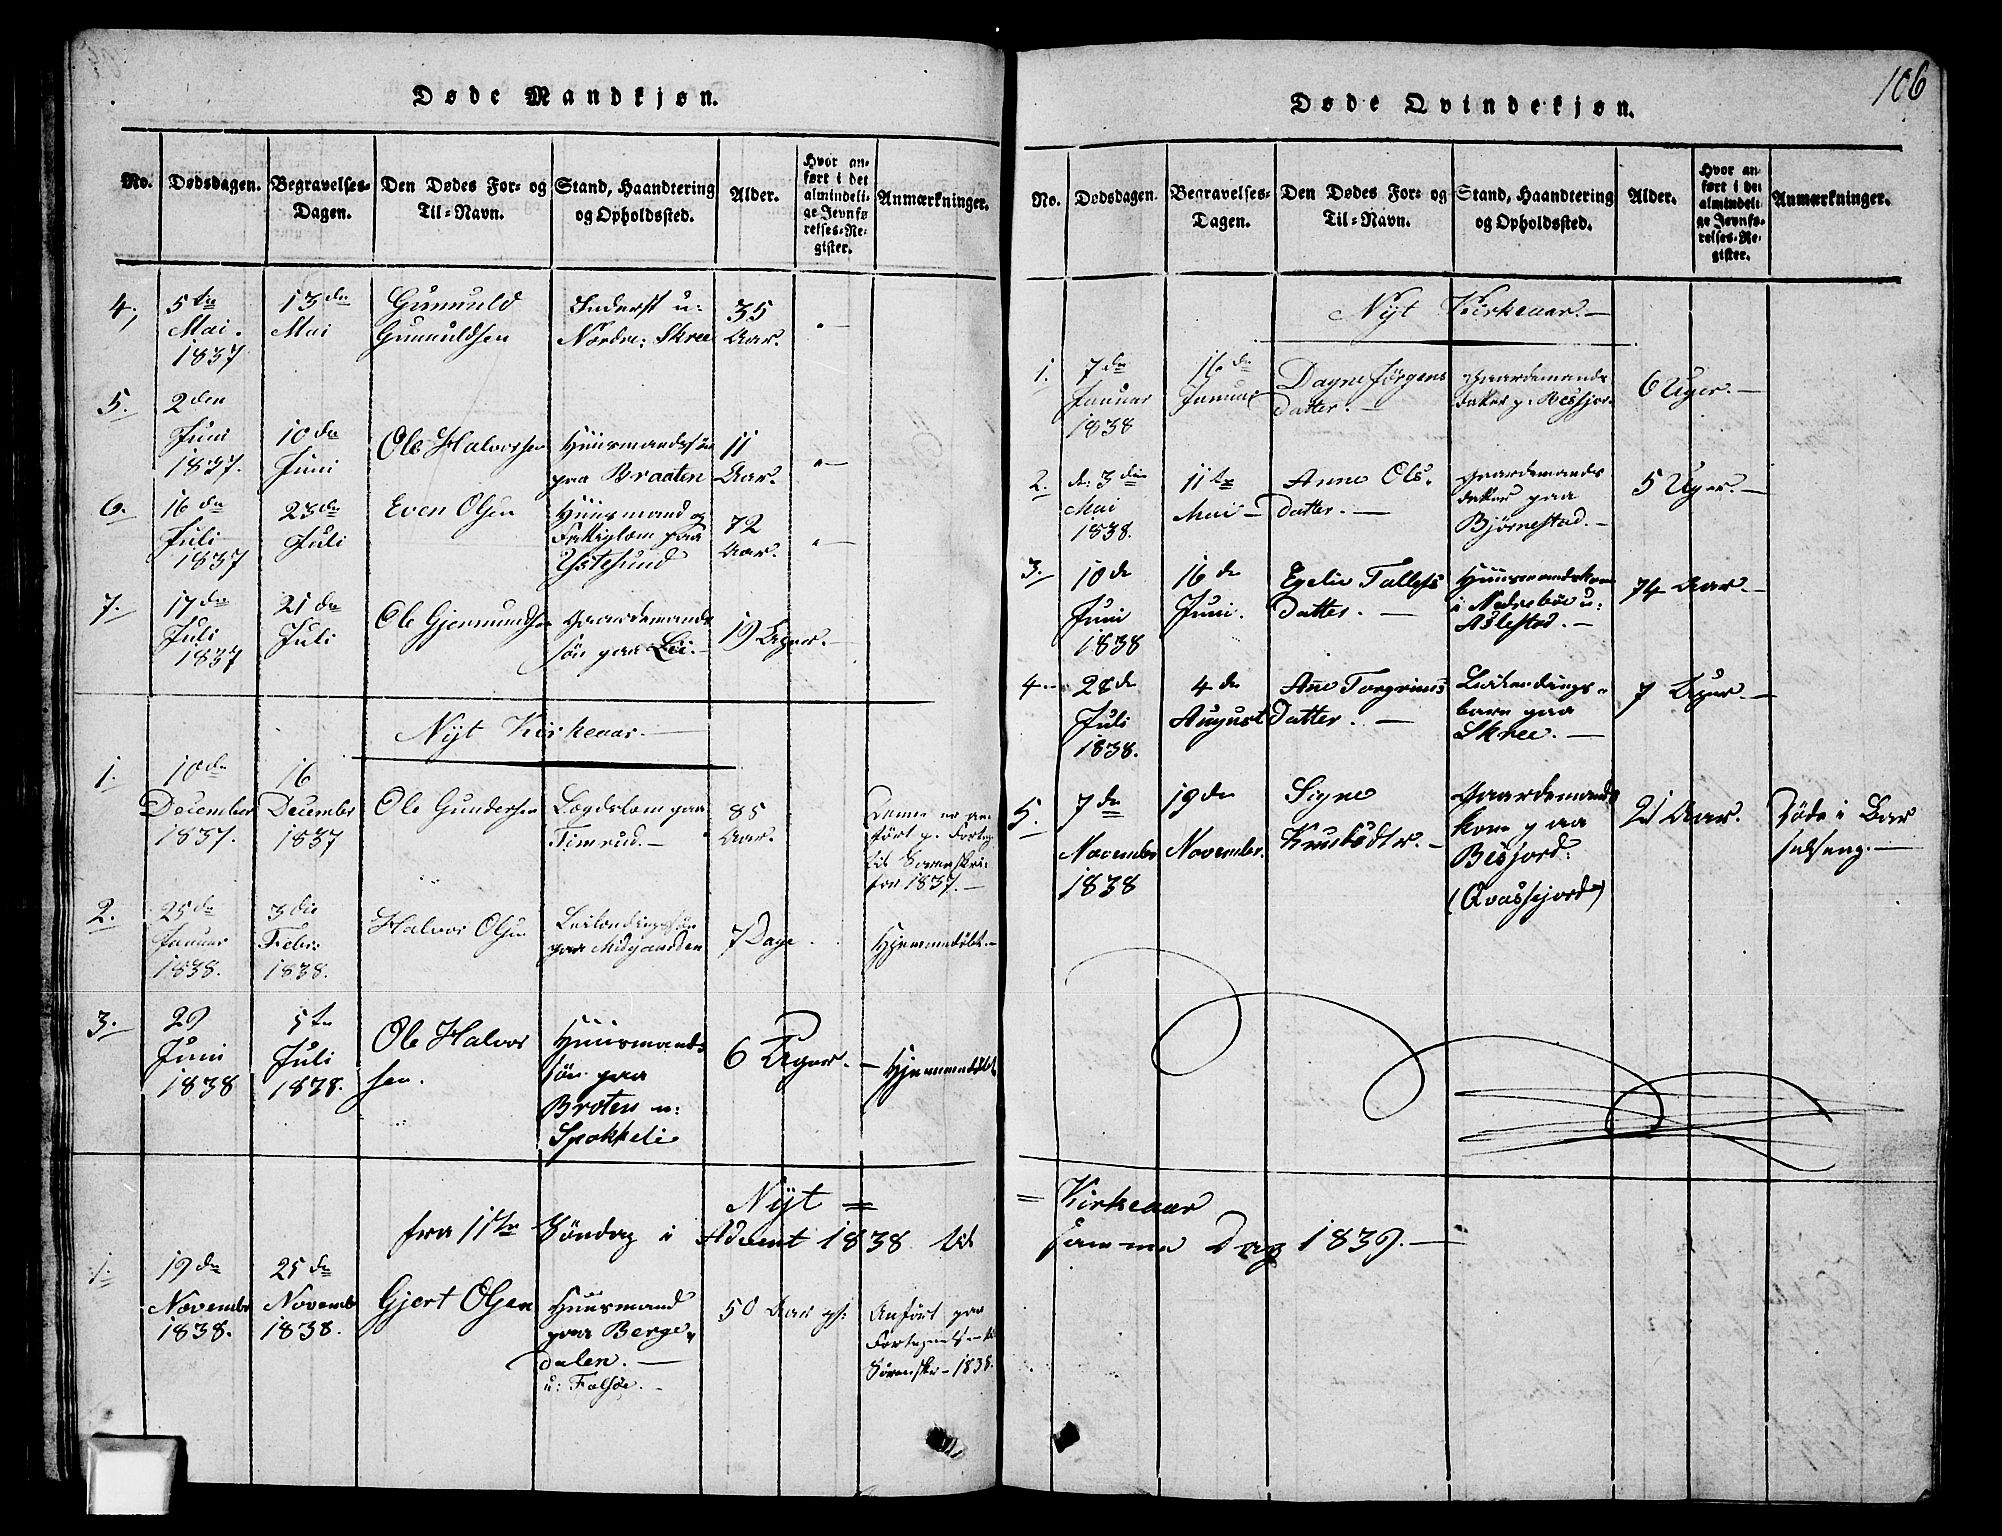 106
Døde Mandkjøn.
No.
Dødsdagen.
Begravelses-
Dagen.
Den Dødes For- og
Til-Navn.
Stand, Haandtering
og Opholdssted.
Alder.
Hvor an-
ført i det
almindeli-
ge Jevnfø
relses-Re-
gister.
Anmærkninger.
4,
5te
Mai.
1837
13de
Mai
Gunuld
Gunuldsen
Inderst u:
Nordre: Skree
35
Aar.
5.
2den
Juni
1837.
10de
Juni
Ole Halvorsen
Huusmandssøn
paa Braaten
11
Aar.
6.
16de
Juli
1837
23de
Juli
Even Olsen
Huusmand og
Fattiglem paa
Ystesund
72
Aar.
7.
17de
Juli
1837
21de
Juli
Ole Gjermundsen
Gaardemands
søn paa Lii.
19 Uger.
Nyt Kirkeaar.
1.
10de
December
1837.
16
December
1837
Ole Gundersen
Lægdslem paa
Timrud.
85
Aar.
Denne er an-
ført p. Forteg
til Sorenskri-
for 1837.
2.
25de
Januar
1838.
3die
Febr
1838.
Halvor Olsen
Leilændingssøn
paa Midgaarden
7 Dage
Hjemmedøbt.
3.
29
Juni
1838
5te
Juli
1838.
Ole Halvor
sen.
Huusmands
søn paa
Broten u:
Spokkeli
6 Uger.
Hjemmedøbt
Nyt =
fra 1ste Søndag i Advent 1838 til
1.
19de
Novembr
1838.
25de
Novembr
1838.
Gjert Olsen
Huusmand
paa Berge„
dalen.
u: Folsøe.
50 Aar gl:
Anført paa
Fortegnels- til
Sørenskr- 1838.
Døde Qvindekjøn.
No.
Dødsdagen.
Begravelses-
Dagen.
Den Dødes For- og
Til-Navn.
Stand, Haandtering
og Opholdssted.
Alder.
Hvor an-
ført i det
almindeli-
ge Jevnfø-
relses-Re-
gister.
Anmærkninger.
Nyt Kirkeaar.
1.
7de
Januar
1838
16de
Januar
Dagne Jørgens
Datter.
Gaardemands
datter p. Besfjor-
6 Uger.
2.
d: 3die
Mai
1838.
11te
Mai
Anne Ols.
Datter.
Gaardemands
datter paa
Bjørnestad.
5 Uger.
3.
10de
Juni
1838
16de
Juni.
Egelie Tallefs
Datter.
Huusmandskone
i Nedrebøe u:
Aslestad.
74 Aar.
4.
28de
Juli
1838.
4de
August
Ane Torgrims
Datter.
Leilændings-
barn paa
Skree.
7 Uger.
5.
7de
Novembr
1838
19de
Novembr.
Signe
Knudsdtr.
Gaardemands
kone paa
Besfjord:
(Qvassejorde)
21 Aar.
Døde i Bar
selseng.
= Kirkeaar
samme Dag 1839.